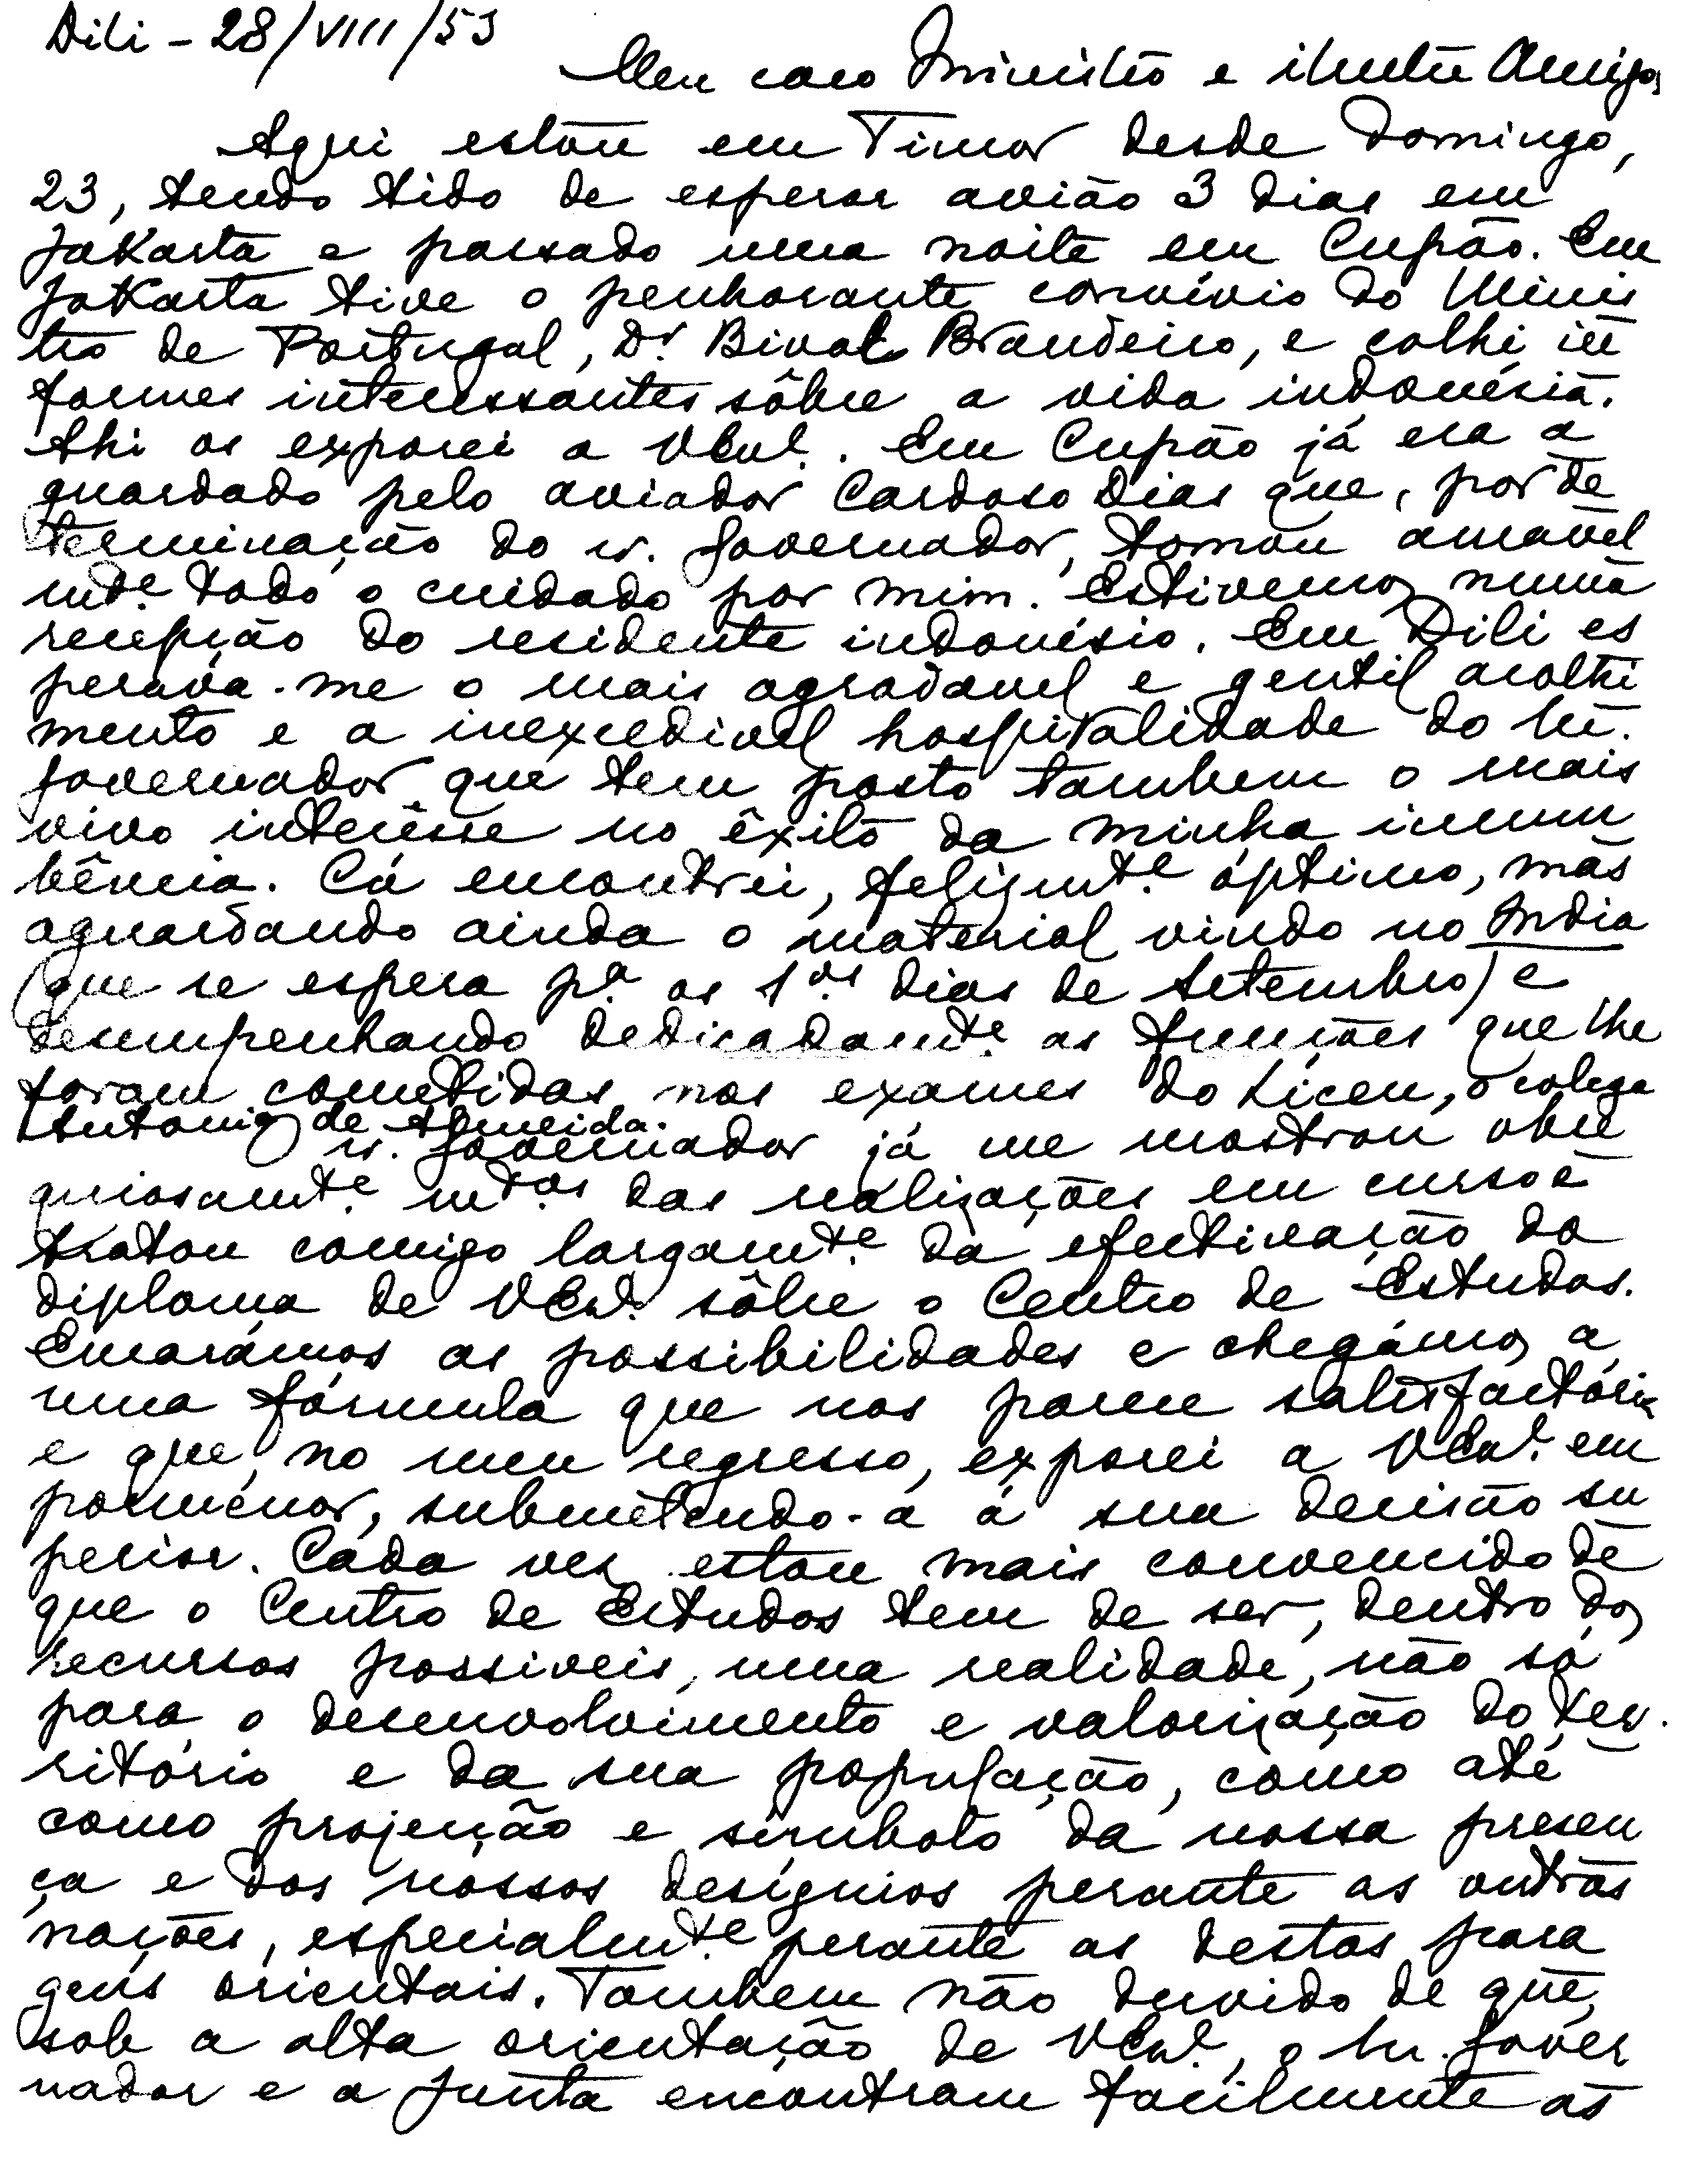 Dili - 28/VIII/53
Meu caro Ministro e ilustre Amigo,
Aqui estou em Timor desde Domingo,
23, tendo tido de esperar avião 3 dias em
Jakarta e passado uma noite em Cupão. Em
Jakarta tive o penhorante convívio do Minis
tro de Portugal, Dr. Bival Brandeiro, e colhi in
formes interessantes sôbre a vida indonésia.
Ahi os exporei a VExª. Em Cupão já era a
guardado pelo aviador Cardoso Dias que, por de
terminação do sr. Governador, tomou amavel
mte. todo o cuidado por mim. Estivemos numa
recepção do residente indonésio. Em Dili es
perava-me o mais agradavel e gentil acolhi
mento e a inexcedivel hospitalidade do Sr.
Governador que tem posto tambem o mais
vivo interêsse no êxito da minha incum
bência. Cá encontrei, felizmte. óptimo, mas
aguardando ainda o material vindo no India
(que se espera pª. os 1os. dias de Setembro) e
desempenhando dedicadamte. as funções que lhe
foram cometidas nos exames do Liceu, o colega
Antonio de Almeida.
sr. Governador já me mostrou obse
quiosamte. mtas das realizações em curso e
tratou comigo largamte. da efectivação do
diploma de VExª. sôbre o Centro de Estudos.
Encarámos as possibilidades e chegámos a
uma fórmula que nos parece satisfactória
e que, no meu regresso, exporei a VExª. em
pormenor, submetendo-a á sua decisão su
perior. Cada vez estou mais convencido de
que o Centro de Estudos tem de ser, dentro dos
recursos possiveis, uma realidade, não só
para o desenvolvimento e valorização do ter-
ritório e da sua população, como até
como projecção e símbolo da nossa presen
ça e dos nossos desígnios perante as outras
nações, especialmte. perante as destas para
gens orientais. Tambem não duvido de que,
sob a alta orientação de VExª., o Sr. Gover
nador e a Junta encontram facilmente as